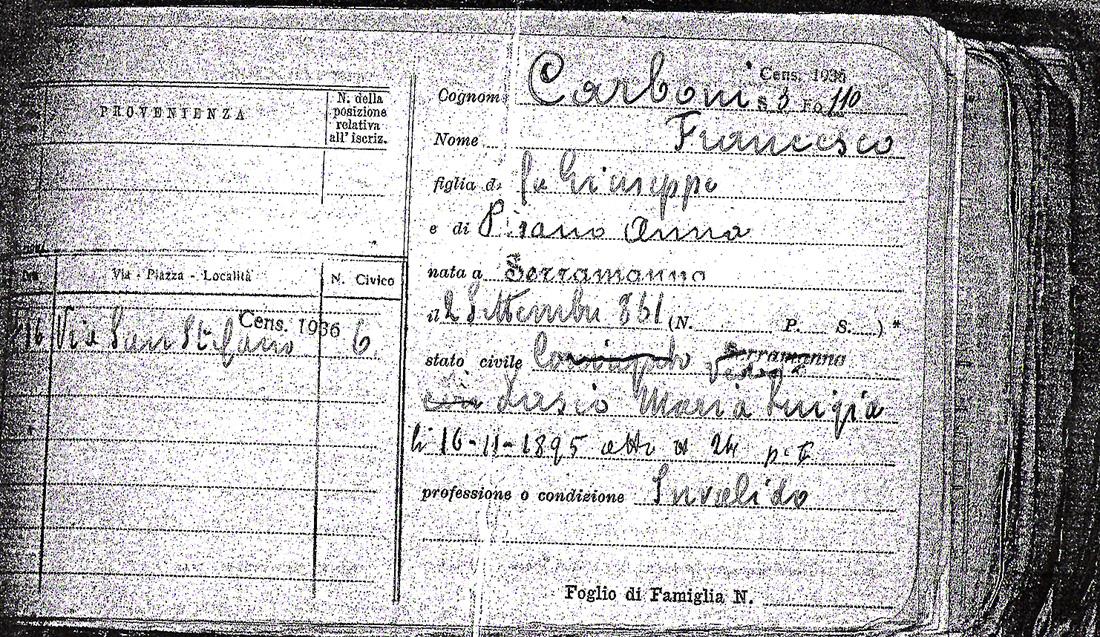 PROVENIENZA
N. della
posizione
relativa
all' iscriz.
Via - Piazza - Località
N. Civico
Cens. 1936
Via San Stefano 6
Cens. 1936
Cognome Carboni S. 3 Fo. 110
Nome Francesco
figlia di fu Giuseppe
e di Pirano Anna
nata a Serramanna
il 2 Settembre 861 (N. P. S. ) *
stato civile Coniugato Serramanna
Vedovo
con Lasio Maria Luigia
li 16-11-1895 atto n 24 p. I
professione o condizione Invalido
Foglio di Famiglia N.